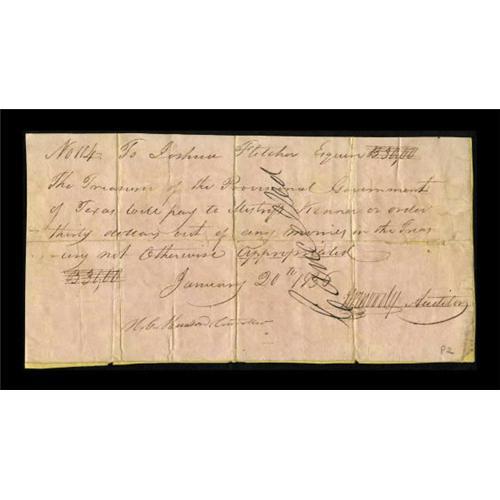 No 114. To Joshua Fletcher Esquire $30,00
The Treasurer of the Provisional Government
of Texas will pay to or order
thirty dollars out of any monies in the Treas
ury not Otherwise Appropriated
$30,00
January 20th 1836
Auditor
P2